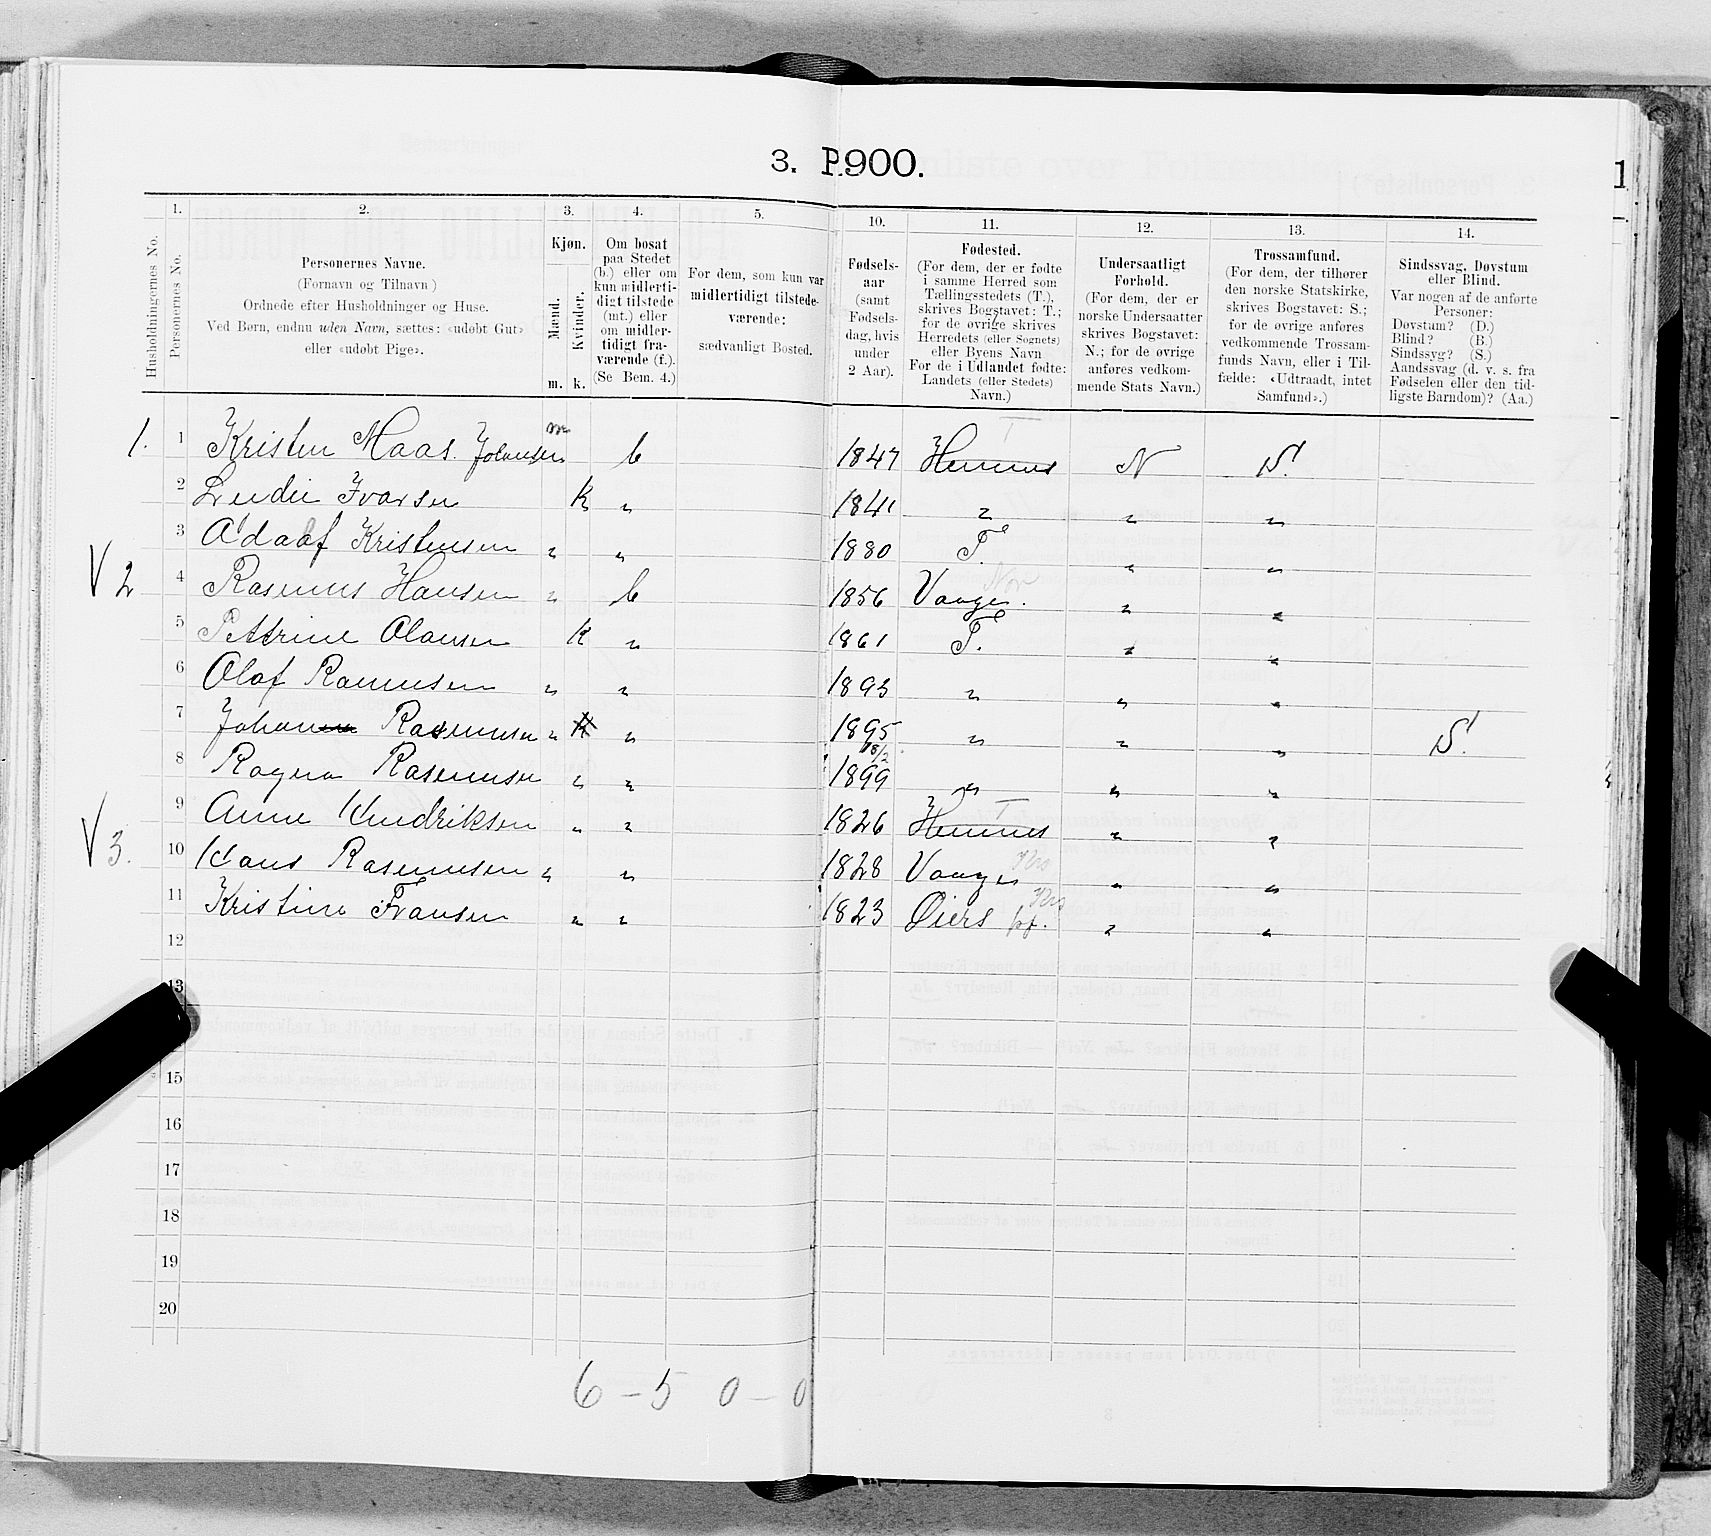 3. P.900.
1
1. 2. 3. 4. 5. 10. 11. 12. 13. 14.
Husholdningernes No.
Personernes No.
Personernes Navne.
(Fornavn og Tilnavn)
Ordnede efter Husholdninger og Huse.
Ved Børn, endnu uden Navn, sættes: «udøbt Gut»
eller «udøbt Pige».
Kjøn.
Mænd.
Kvinder.
m. k.
Om bosat
paa Stedet
(b.) eller om
kun midlerti-
digt tilstede
(mt.) eller
om midler-
tidigt fra-
værende (f.).
(Se Bem. 4.)
For dem, som kun var
midlertidigt tilstede-
værende:
sædvanligt Bosted.
Fødsels-
aar
(samt
Fødsels-
dag, hvis
under
2 Aar).
Fødested.
(For dem, der er fødte
i samme Herred som
Tællingsstedets (T.),
skrives Bogstavet: T.;
for de øvrige skrives
Herredets (eller Sognets)
eller Byens Navn
For de i Udlandet fødte:
Landets (eller Stedets)
Navn.)
Undersaatligt
Forhold.
(For dem, der er
norske Undersaatter
skrives Bogstavet:
N.; for de øvrige
anføres vedkom-
mende Stats Navn.)
Trossamfund.
(For dem, der tilhører
den norske Statskirke,
skrives Bogstavet: S.;
for de øvrige anføres
vedkommende Trossam-
funds Navn, eller i Til-
fælde: «Udtraadt, intet
Samfund».)
Sindssvag, Døvstum
eller Blind.
Var nogen af de anførte
Personer:
Døvstum? (D.)
Blind? (B.)
Sindssyg? (S.)
Aandssvag (d. v. s. fra
Fødselen eller den tid-
ligste Barndom)? (Aa.)
1. 1 Kristen Maas. Johansen m b 1847 Hemnes T N S.
2 Ivarsen k " 1841 " " "
3 Adolf Kristensen " " 1880 T. " "
V 2 4 Rasmus Hansen " b 1856 Vaager. " "
5 Pettrine Olausen k " 1861 T. " "
6 Olaf Rasmusen " " 1893 " " "
7 Johanna Rasmusen " k " 1895 " " " S.
8 Ragna Rasmusen " " 18/2 1899 " " "
V 3. 9 Anne Hendriksen " " 1826 Hemnes T " "
10 Hans Rasmusen " " 1828 Vaager " "
11 Kristine Fransen " " 1823 Øiers pf. " "
12
13
15
16
17
18
19
20
6 – 5 0 – 0